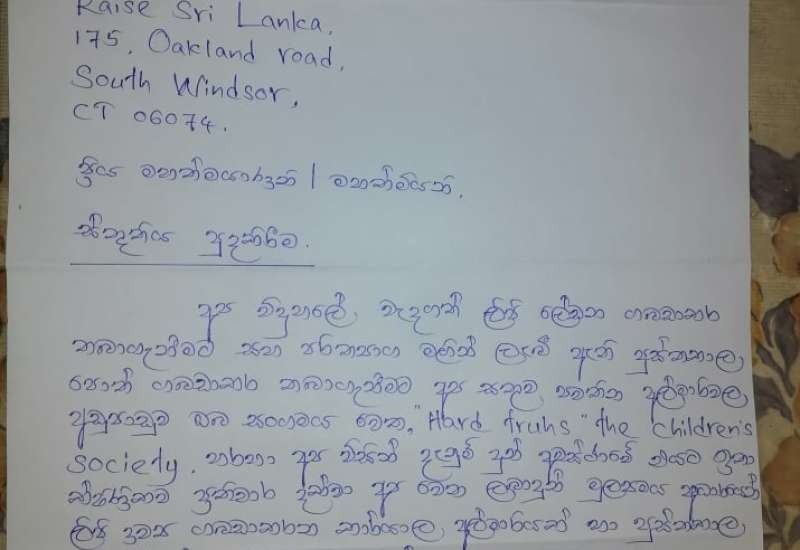 Raise Sri Lanka,
175, Oakland road,
South Windsor,
CT 06074.
ප්‍රිය මහත්මයාණනි / මහත්මියනි,
ස්තූතිය පුදකිරීම.
අප විදුහලේ, වැදගත් ලිපි ලේඛන ගබඩාකර
තබාගැනීමට සහ පරිත්‍යාග මඟින් ලැබී ඇති පුස්තකාල,
පොත් ගබඩාකර තබාගැනීමට අප සතුව පවතින අල්මාරිවල,
අඩුපාඩුව ඔබ සංගමය වෙත, "Hard truhs" the children's
society. හරහා අප විසින් දැනුම් දුන් අවස්ථාවේ එයට ඉතා
ක්ෂණිකව ප්‍රතිචාර දක්වා අප වෙත ලබාදුන් මුල්‍යමය ආධාරයෙන්
ලිපි ද්‍රව්‍ය ගබඩාකරන කාර්යාල, අල්මාරියක් හා පුස්තකාල,